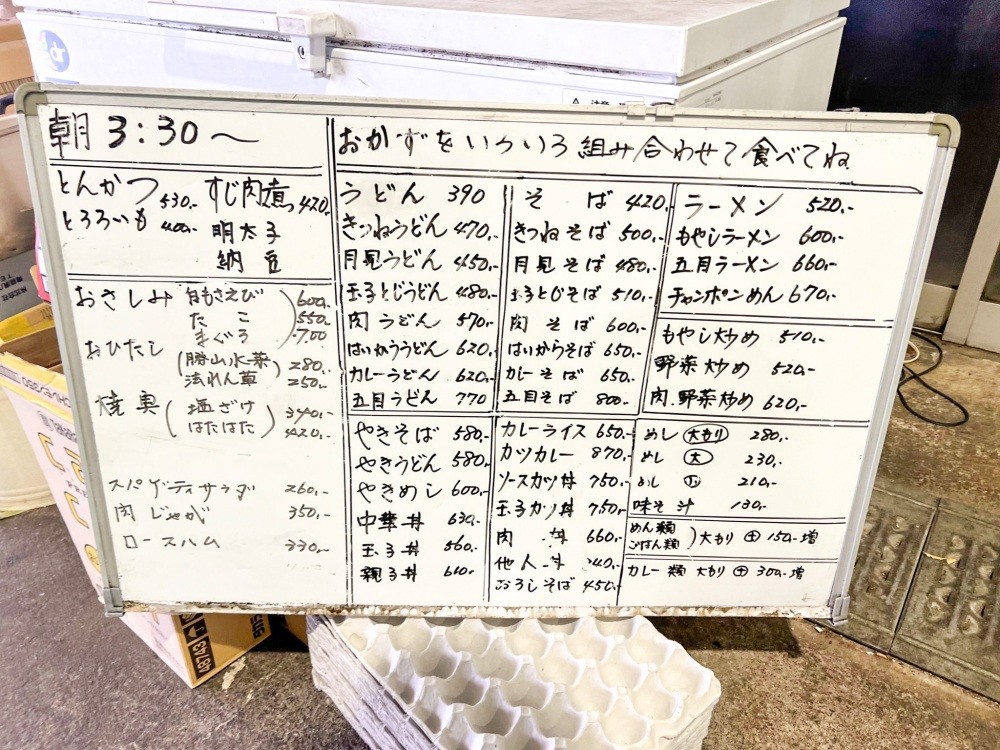 朝 3:30〜
おかずをいろいろ組み合わせて食べてね
とんかつ 530.-
すじ肉煮っ 420.-
とろろいも 400.-
明太子
納豆
おさしみ 白もさえび 600.-
たこ 550.-
まぐろ 700
おひたし (勝山水菜) 280.-
法れん草 250.-
焼奥 (塩ざけ) 340.-
はたはた 420.-
スパゲティサラダ 260.-
肉じゃが 350.-
ロースハム 330.-
うどん 390
きつねうどん 470.-
月見うどん 450.-
玉子とじうどん 480.-
肉うどん 570.-
はいからうどん 620.-
カレーうどん 620.-
五目うどん 770
そば 420.-
きつねそば 500.-
月見そば 480.-
玉子とじそば 510.-
肉そば 600.-
はいからそば 650.-
カレーそば 650.-
五目そば 800.-
ラーメン 520.-
もやしラーメン 600.-
五目ラーメン 660.-
チャンポンめん 670.-
もやし炒め 510.-
野菜炒め 520.-
肉.野菜炒め 620.-
やきそば 580.-
やきうどん 580.-
やきめし 600.-
中華丼 630.-
玉子丼 560.-
親子丼 610.-
カレーライス 650.-
カツカレー 870.-
ソースカツ丼 750.-
玉子カツ丼 750.-
肉丼 660.-
他人丼
おろしそば 450.-
めし 大もり 280.-
めし 大 230.-
めし 小 210.-
味そ汁 130.-
めん類
ごはん類 ) 大もり ㊉ 150.-増
カレー類 大もり ㊉ 300.-増
注意
48743